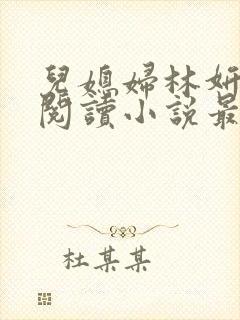 兒媳婦林妍
閱讀小說最
杜某某